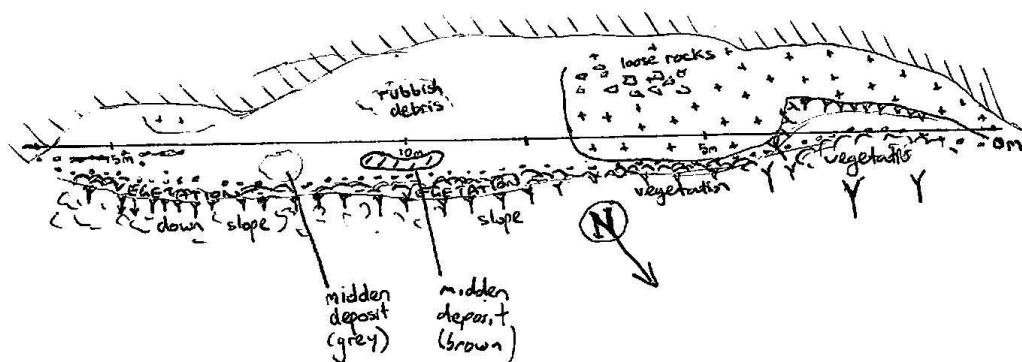 loose rocks
rubbish
debris
15m
10m
5m
0m
VEGETATION
VEGETATION
vegetation
vegetation
down slope
slope
N
midden
deposit
(grey)
midden
deposit
(brown)